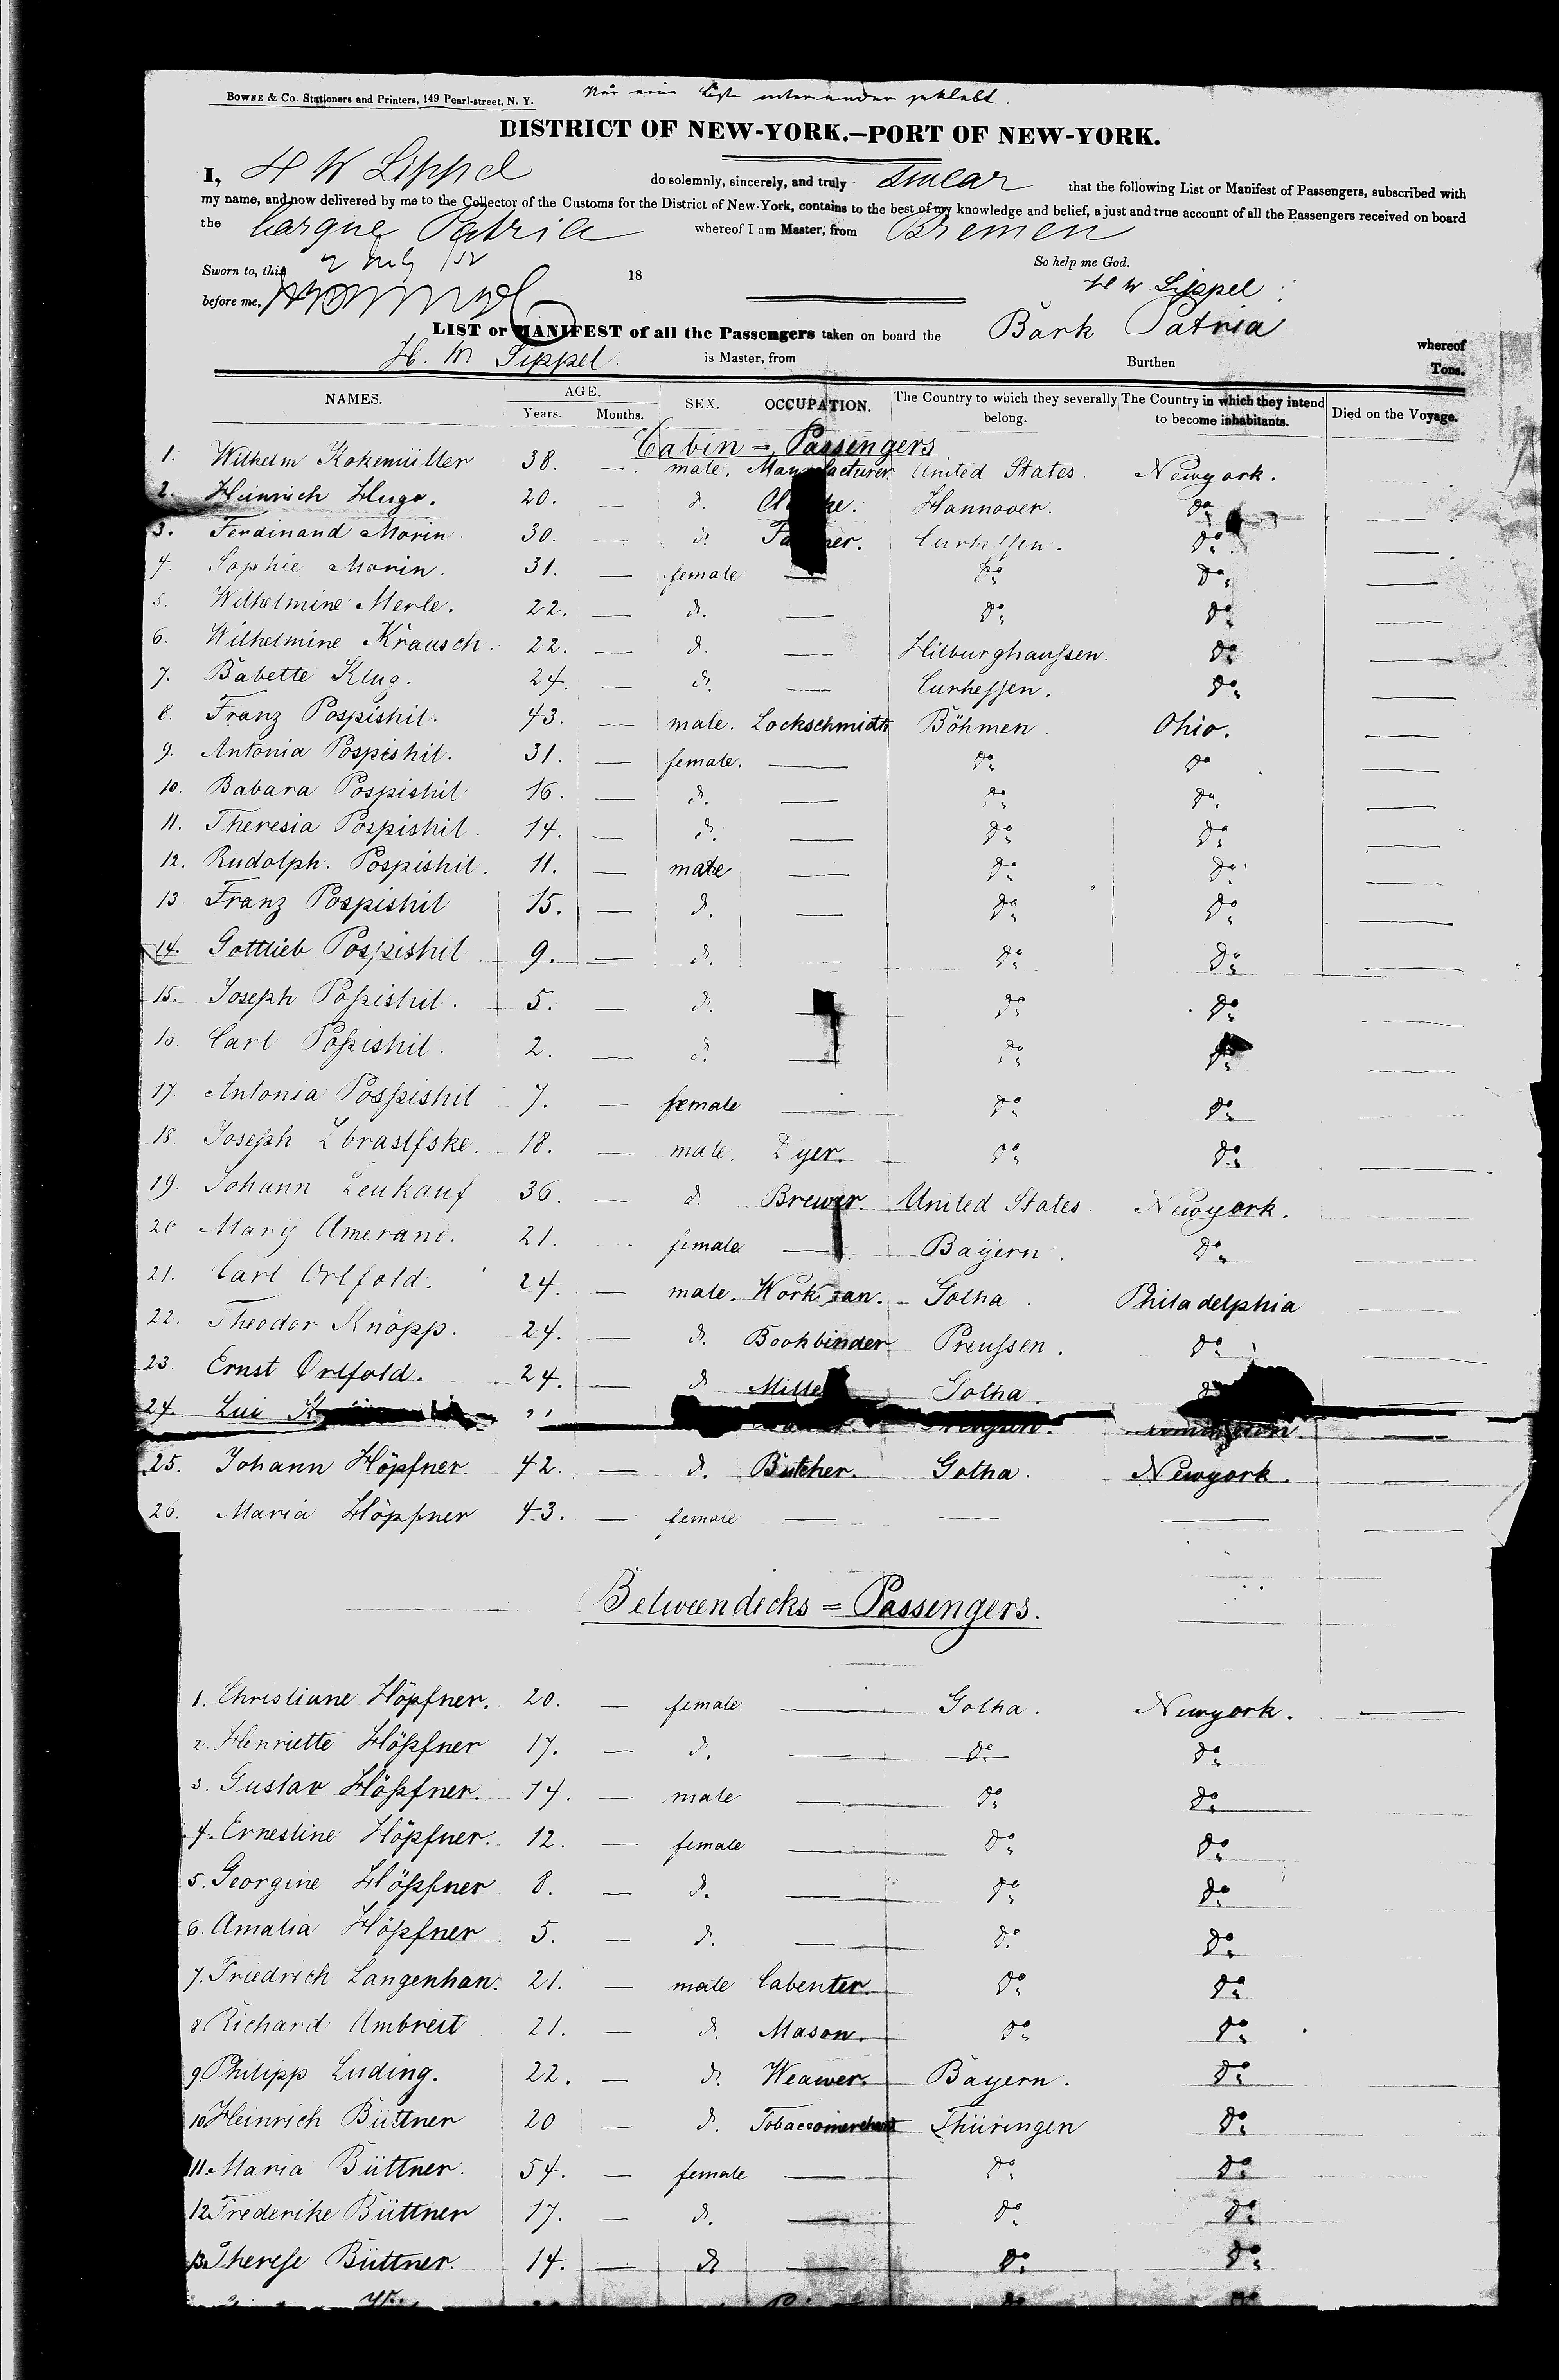 BOWNE & Co. Stationers and Printers, 149 Pearl-street, N. Y.
DISTRICT OF NEW-YORK.—PORT OF NEW-YORK.
I, H W Lippel do solemnly, sincerely, and truly swear that the following List or Manifest of Passengers, subscribed with
my name, and now delivered by me to the Collector of the Customs for the District of New-York, contains to the best of my knowledge and belief, a just and true account of all the Passengers received on board
the Barque Patria whereof I am Master, from Bremen
Sworn to, this 2 July 52 18 So help me God.
before me, H W Lippel
LIST or MANIFEST of all the Passengers taken on board the Bark Patria whereof
H. W. Lippel is Master, from Burthen Tons.
NAMES. AGE. Years. Months. SEX. OCCUPATION. The Country to which they severally belong. The Country in which they intend to become inhabitants. Died on the Voyage.
Cabin = Passengers
1. Wilhelm Kokemüller 38. — male. Manufacturer United States. Newyork. —
2. Heinrich Hugo. 20. — d. Hannover. do —
3. Ferdinand Morin. 30. — d. Curhessen. do —
4. Sophie Morin. 31. — female — do do —
5. Wilhelmine Merle. 22. — d. — do do —
6. Wilhelmine Krausch. 22. — d. — Hilburghaussen. do —
7. Babette Klug. 24. — d. — Curhessen. do —
8. Franz Pospishil. 43. — male. Lockschmidt Böhmen. Ohio. —
9. Antonia Pospishil. 31. — female. — do do —
10. Babara Pospishil 16. — d. — do do —
11. Theresia Pospishil. 14. — d. — do do —
12. Rudolph. Pospishil. 11. — male — do do —
13 Franz Pospishil 15. — d. — do do —
14. Gottlieb Pospishil 9. — d. — do do —
15. Joseph Pospishil. 5. — d. — do do —
16 Carl Pospishil. 2. — d. — do do —
17. Antonia Pospishil 7. — female — do do —
18 Joseph Zbraslfske. 18. — male. Dyer. do do —
19. Johann Leukauf 36. — d. Brewer. United States Newyork. —
20 Marÿ Amerand. 21. female — Baÿern. do —
21. Carl Ortfold. 24. — male. Workman. Gotha. Philadelphia —
22. Theodor Knöpp. 24. — d. Bookbinder Preussen. do —
23. Ernst Ortfold. 24. — d Miller Gotha. do
24. Lui
25. Johann Höpfner. 42. — d. Butcher. Gotha. Newyork. —
26. Maria Höpfner 43. — female — — — —
Betweendecks = Passengers.
1. Christiane Höpfner. 20. — female — Gotha. Newyork. —
2. Henriette Höpfner 17. — d. — do do
3. Gustav Höpfner. 14. — male — do do
4. Ernestine Höpfner. 12. — female — do do
5. Georgine Höpfner 8. — d. — do do
6. Amalia Höpfner 5. — d. — do do
7. Friedrich Langenhan. 21. — male Cabenter. do do
8 Richard Umbreit 21. — d. Mason. do do
9 Philipp Luding. 22. — d. Weawer. Bayern. do
10 Heinrich Büttner 20 — d. Tobaccomerchant Thüringen do
11. Maria Büttner. 54. — female — do do
12. Frederike Büttner 17. — d. — do do
13. Therese Büttner. 14. — d. — do do